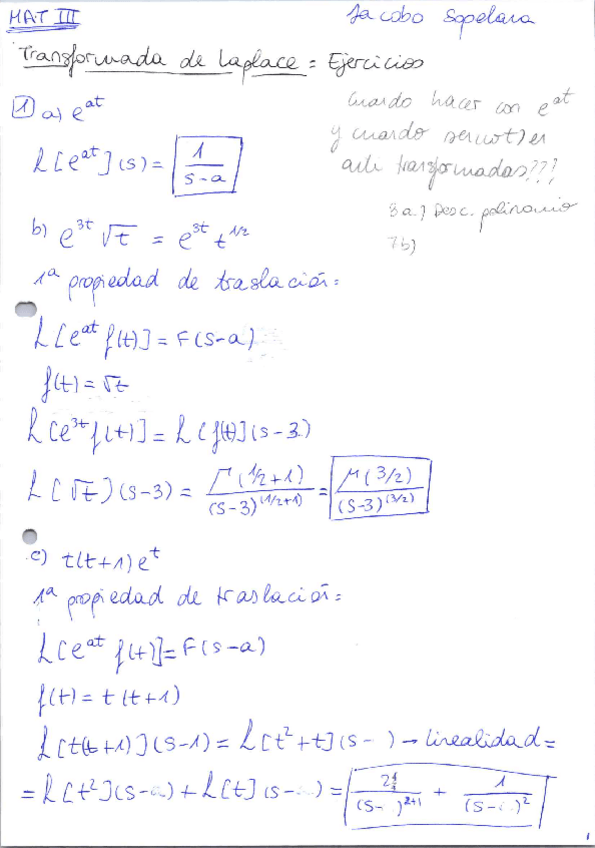 MAT III Jacobo Sopelana
Transformada de Laplace = Ejercicios
1 a) e^at
Cuando hacer con e^at
y cuando
transformadas???
3a) Desc. polinomio
7b)
L[e^at](s) = 1/(s-a)
b) e^3t √t = e^3t t^1/2
1ª propiedad de traslación:
L[e^at f(t)] = F(s-a)
f(t) = √t
L[e^3t f(t)] = L[f(t)](s-3)
L[√t](s-3) = Γ(1/2+1)/(s-3)^(1/2+1) = Γ(3/2)/(s-3)^(3/2)
c) t(t+1)e^t
1ª propiedad de traslación:
L[e^at f(t)] = F(s-a)
f(t) = t(t+1)
L[t(t+1)](s-1) = L[t²+t](s- ) → linealidad =
= L[t²](s- ) + L[t](s- ) = /(s- )^2+1 + 1/(s- )²
1